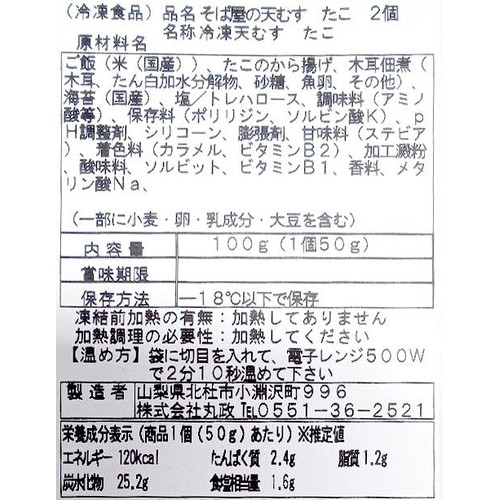 （冷凍食品）品名そば屋の天むす　たこ　2個
名称冷凍天むす　たこ
原材料名
ご飯（米（国産））、たこのから揚げ、木耳佃煮（
木耳、たん白加水分解物、砂糖、魚卵、その他）、
海苔（国産）、塩／トレハロース、調味料（アミノ
酸等）、保存料（ポリリジン、ソルビン酸K）、p
H調整剤、シリコーン、膨張剤、甘味料（ステビア
）、着色料（カラメル、ビタミンB2）、加工澱粉
、酸味料、ソルビット、ビタミンB1、香料、メタ
リン酸Na、
（一部に小麦・卵・乳成分・大豆を含む）
内容量　100g（1個50g）
賞味期限
保存方法　－18℃以下で保存
凍結前加熱の有無：加熱してありません
加熱調理の必要性：加熱してください
【温め方】袋に切目を入れて、電子レンジ500W
で2分10秒温めて下さい
製造者　山梨県北杜市小淵沢町996
株式会社丸政℡0551－36－2521
栄養成分表示（商品1個（50g）あたり）※推定値
エネルギー　120kcal　たんぱく質　2.4g　脂質　1.2g
炭水化物　25.2g　食塩相当量　1.6g